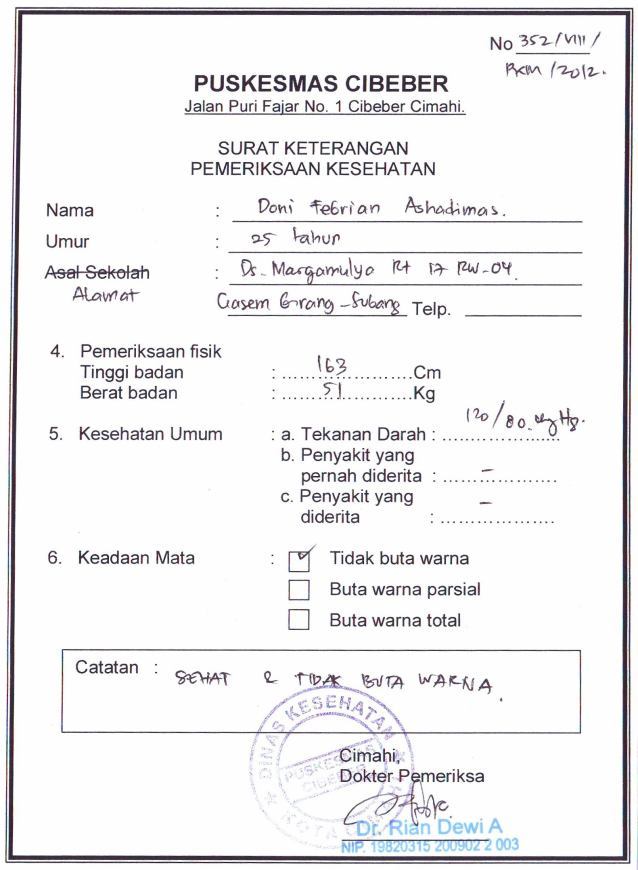 No 352/VIII/
PKM/2012.
PUSKESMAS CIBEBER
Jalan Puri Fajar No. 1 Cibeber Cimahi.
SURAT KETERANGAN
PEMERIKSAAN KESEHATAN
Nama : Doni Febrian Ashadimas.
Umur : 25 tahun
Asal Sekolah : Ds. Margamulyo Rt 17 RW-04.
Alamat
Girang-Subang Telp.
4. Pemeriksaan fisik
Tinggi badan : 163 Cm
Berat badan : 51 Kg
5. Kesehatan Umum : a. Tekanan Darah : 120/80 mg Hg.
b. Penyakit yang
pernah diderita : -
c. Penyakit yang
diderita : -
6. Keadaan Mata : ✓ Tidak buta warna
Buta warna parsial
Buta warna total
Catatan : SEHAT & TIDAK BUTA WARNA.
DINAS KESEHATAN
PUSKESMAS
CIBEBER
KOTA CIMAHI
Cimahi,
Dokter Pemeriksa
Dr. Rian Dewi A
NIP. 19820315 200902 2 003